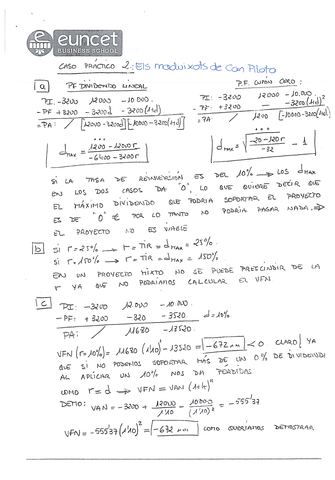 euncet
BUSINESS SCHOOL
CASO PRÁCTICO 2: Els maduixots de Can Pilota
a PF DIVIDENDO LINEAL PF CUPÓN CERO:
PI: -3200 12000 -10.000. PI: -3200 12000 -10.000.
-PF +3200 -3200d -3200(1+d) -PF: +3200 — -3200(1+d)²
=PA: / [12000-3200d] [-10000-3200(1+d)] =PA / 12000 [-10000-3200(1+d)²]
dmax = 1200 - 12000r / -6400 - 3200r dmax = √ -20 - 120r / -32 - 1
SI LA TASA DE REINVERSIÓN ES DEL 10% → LOS dmax
EN LOS DOS CASOS DA "0", LO QUE QUIERE DECIR QUE
EL MÁXIMO DIVIDENDO QUE PODRÍA SOPORTAR EL PROYECTO
ES DE "0" € POR LO TANTO NO PODRÍA PAGAR NADA. ⇒
PROYECTO NO ES VIABLE
b SI r=25% → r = TIR = dmax = 25%.
SI r=150% → r = TIR = dmax = 150%.
EN UN PROYECTO MIXTO NO SE PUEDE PRESCINDIR DE LA
r YA QUE NO PODRÍAMOS CALCULAR EL VFN
c PI: -3200 12.000 -10.000.
-PF: +3200 -320 -3520. d=10%
PA: / 11680 -13520.
VFN (r=10%) = 11680 (1'10)¹ - 13520 = -672 um < 0 CLARO! YA
QUE SI NO PODEMOS SOPORTAR MÁS DE UN 0% DE DIVIDENDO
AL APLICAR UN 10% NOS DA PÉRDIDAS
COMO r=d → VFN = VAN (1+k)ⁿ
DEMO: VAN = -3200 + 12000 / 1'10 - 10000 / (1'10)² = -555'37
VFN = -555'37 (1'10)² = -672 um COMO QUERÍAMOS DEMOSTRAR